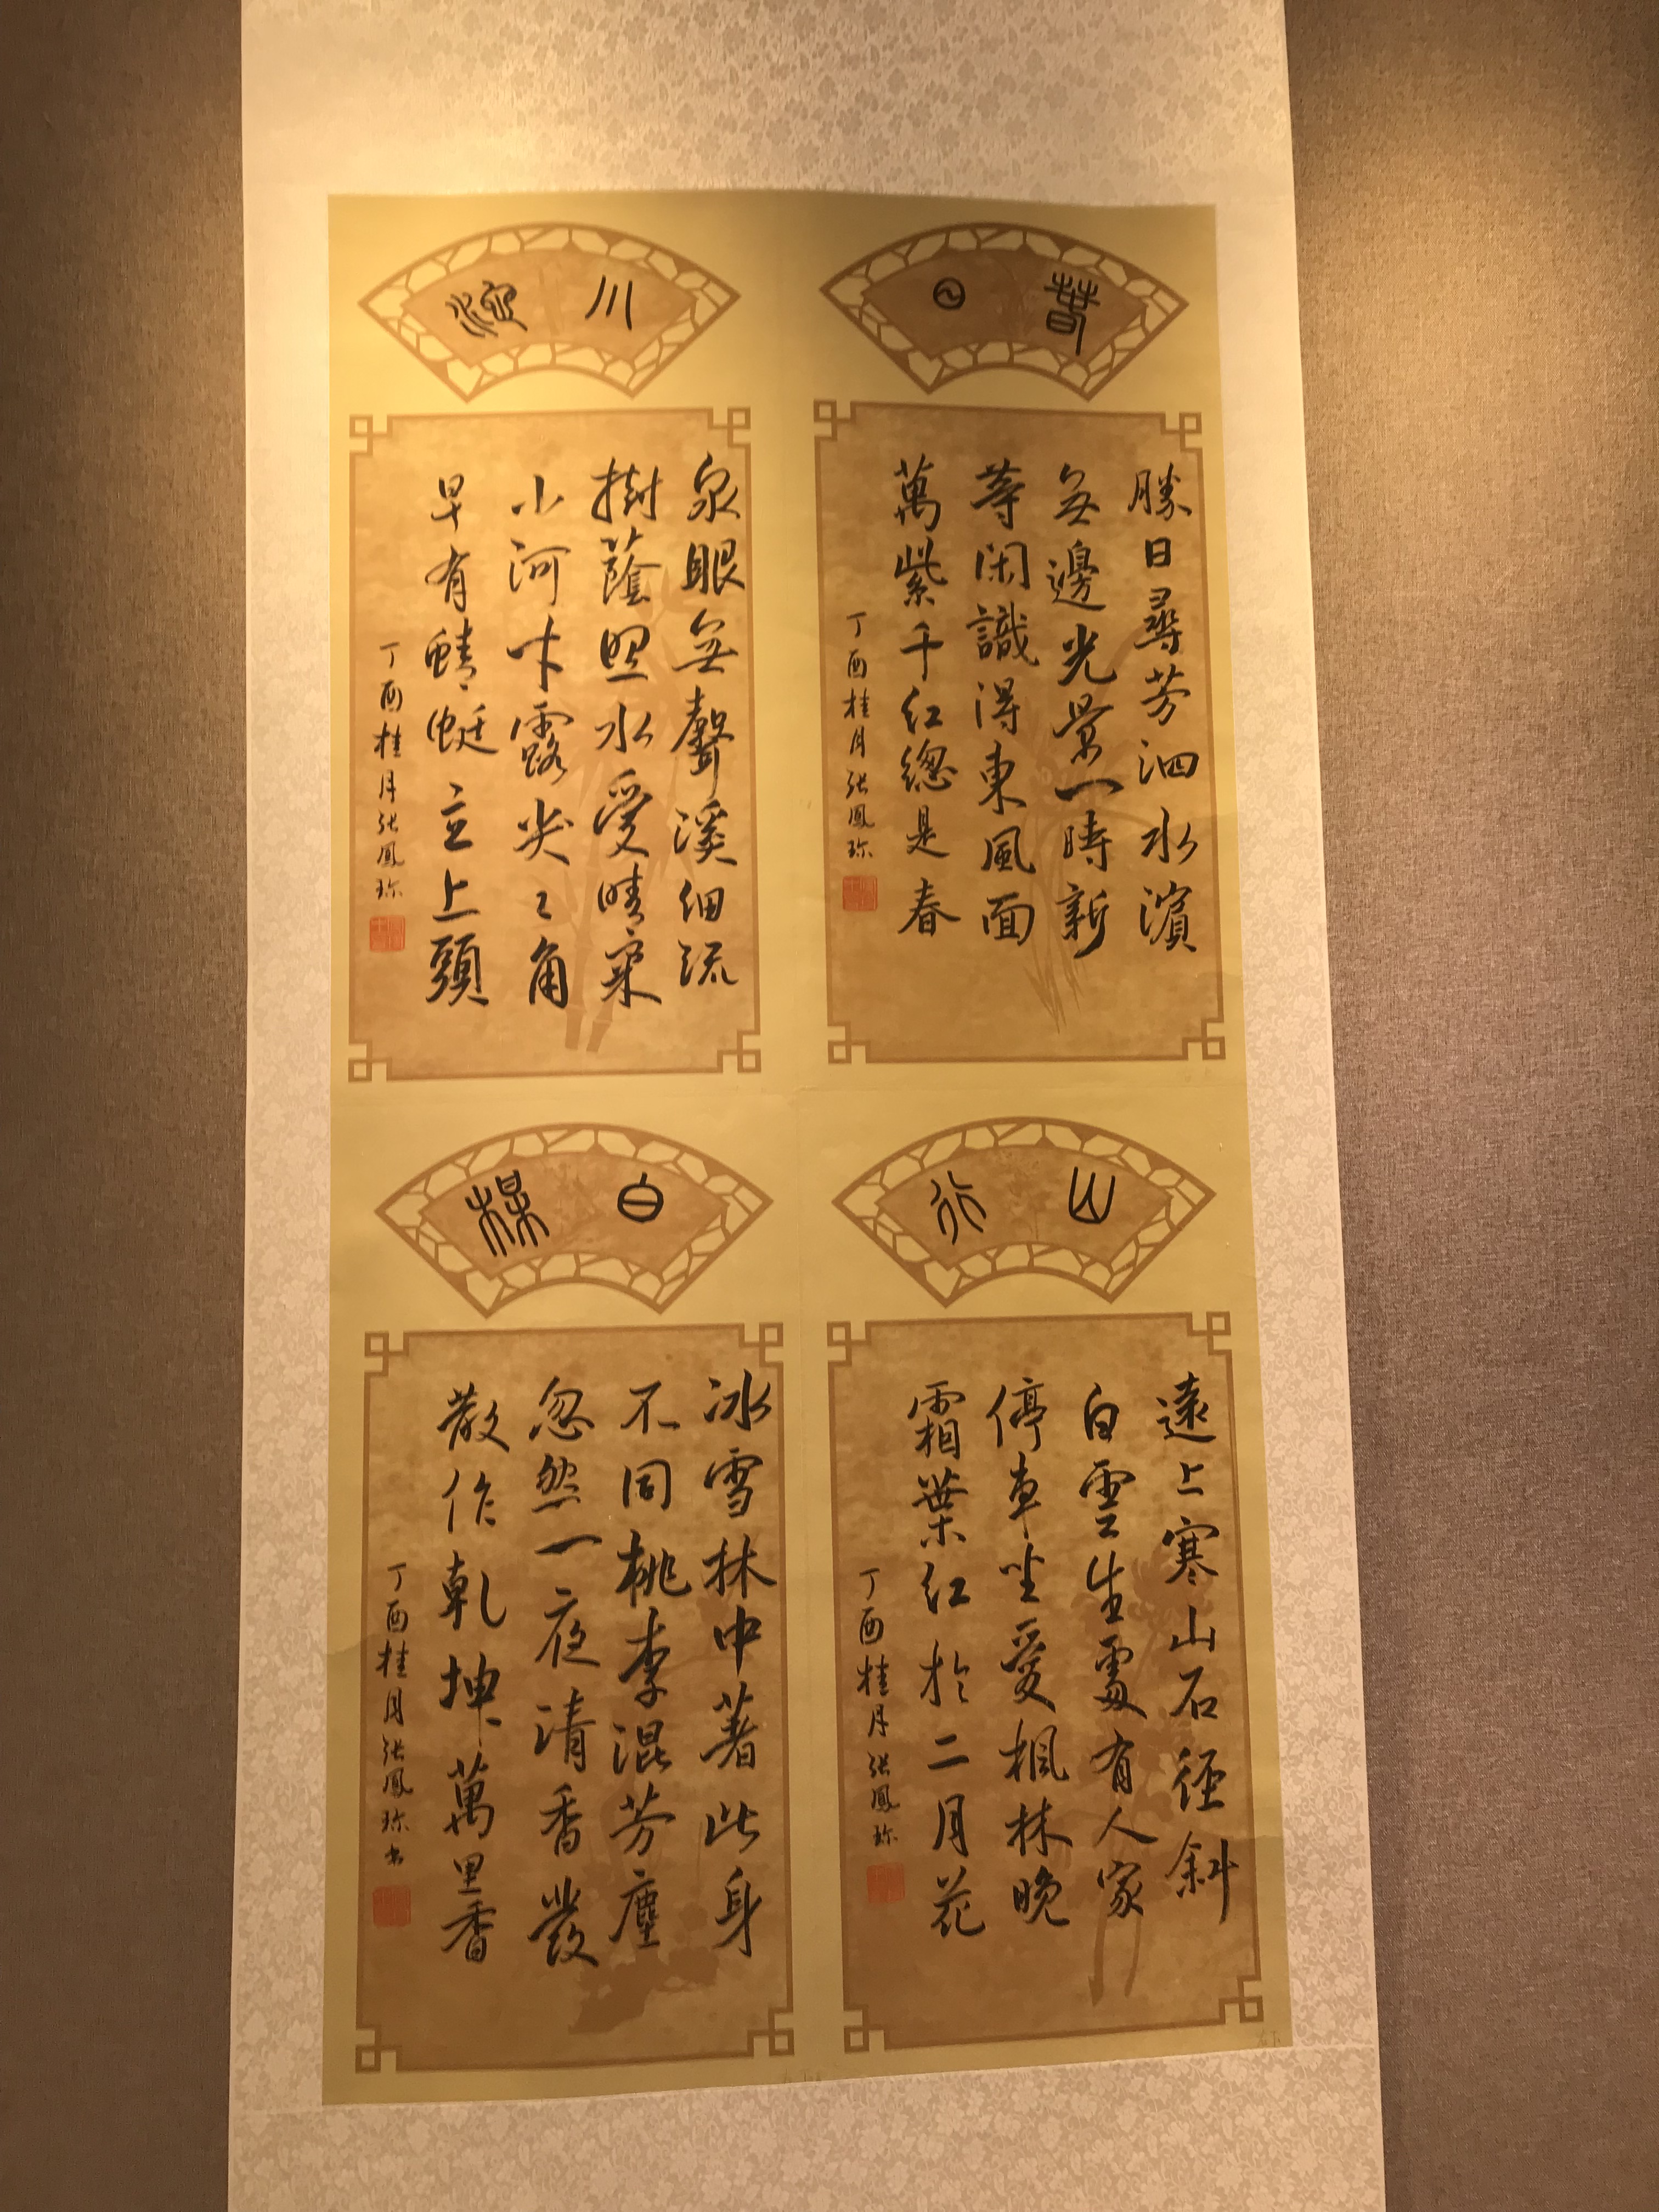 春日
勝日尋芳泗水濱
無邊光景一時新
等閑識得東風面
萬紫千红總是春
丁酉桂月张鳳珍
小池
泉眼無聲溪细流
樹蔭照水愛晴柔
小河才露尖々角
早有蜻蜓立上頭
丁酉桂月张鳳珍
山行
遠上寒山石徑斜
白雲生處有人家
停車坐愛楓林晚
霜葉红於二月花
丁酉桂月张鳳珍
白梅
冰雪林中著此身
不同桃李混芳塵
忽然一夜清香發
散作乾坤萬里香
丁酉桂月张鳳珍书